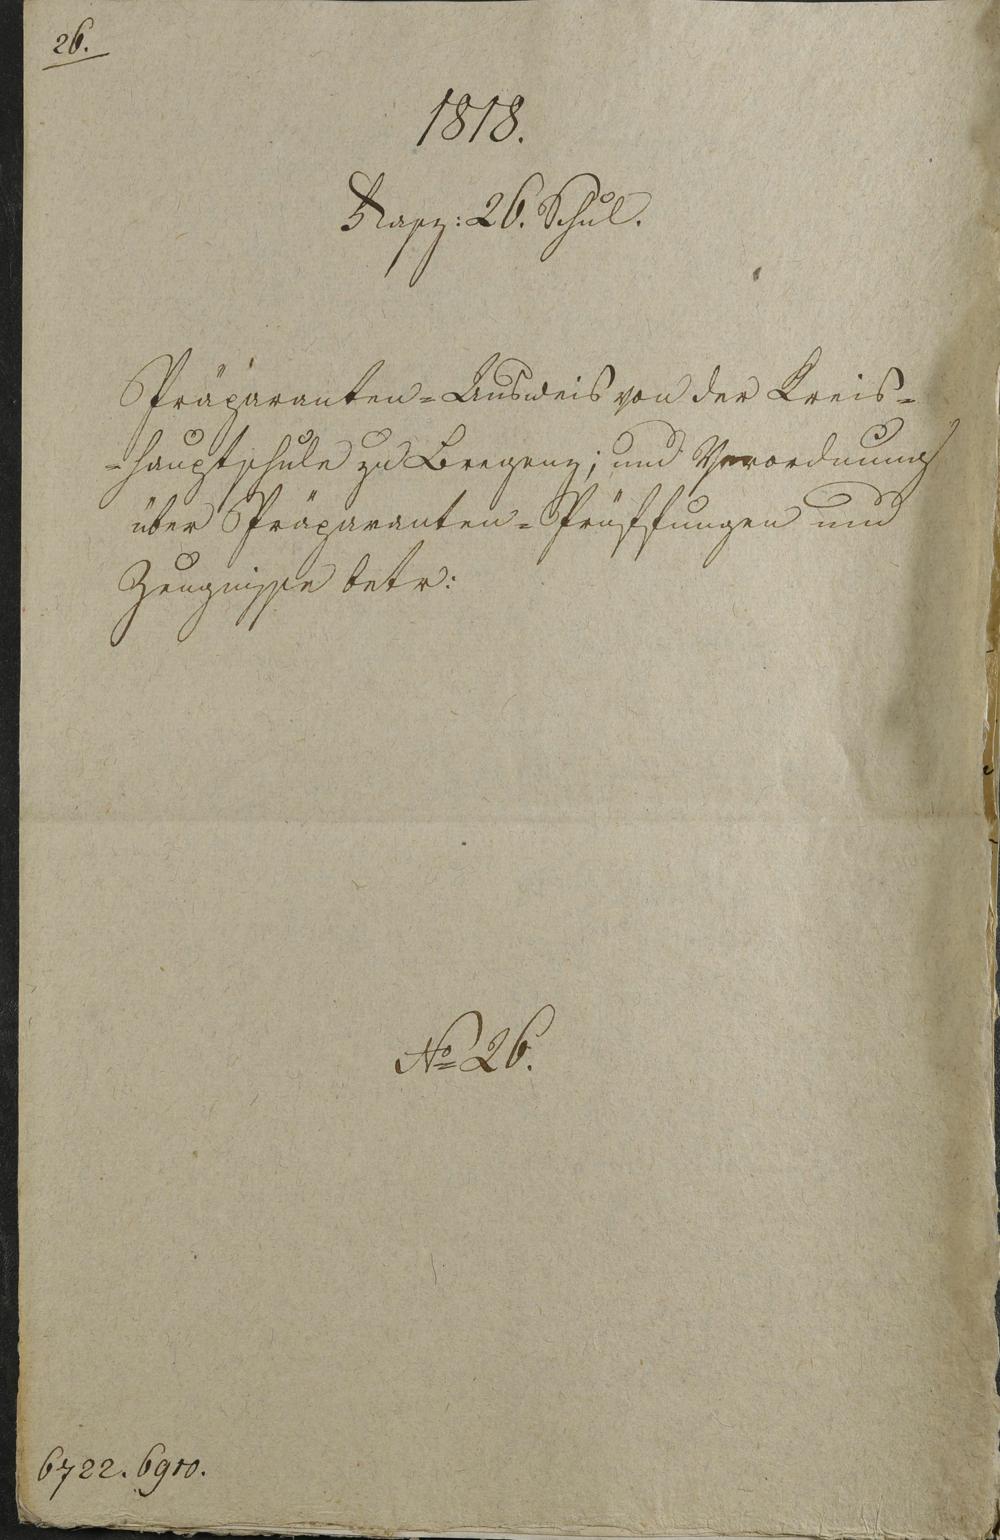 26.
1818.
Fasz: 26. Schul.
Präparanten=Ausweis von der Kreis=
=hauptschule zu Bregenz; und Verordnung
über Präparanten=Prüffungen und
Zeugnisse betr:
No 26.
6722. 6910.